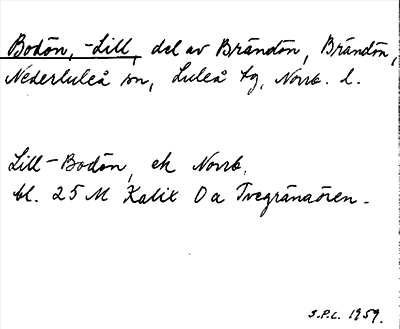 Bodön, -Lill, del av Brändön, Brändön,
Nederluleå sn, Luleå tg, Norrb. l.
Lill-Bodön, ek Norrb.
bl. 25 M Kalix Oa Tvegränaören.
S.P.L. 1959.